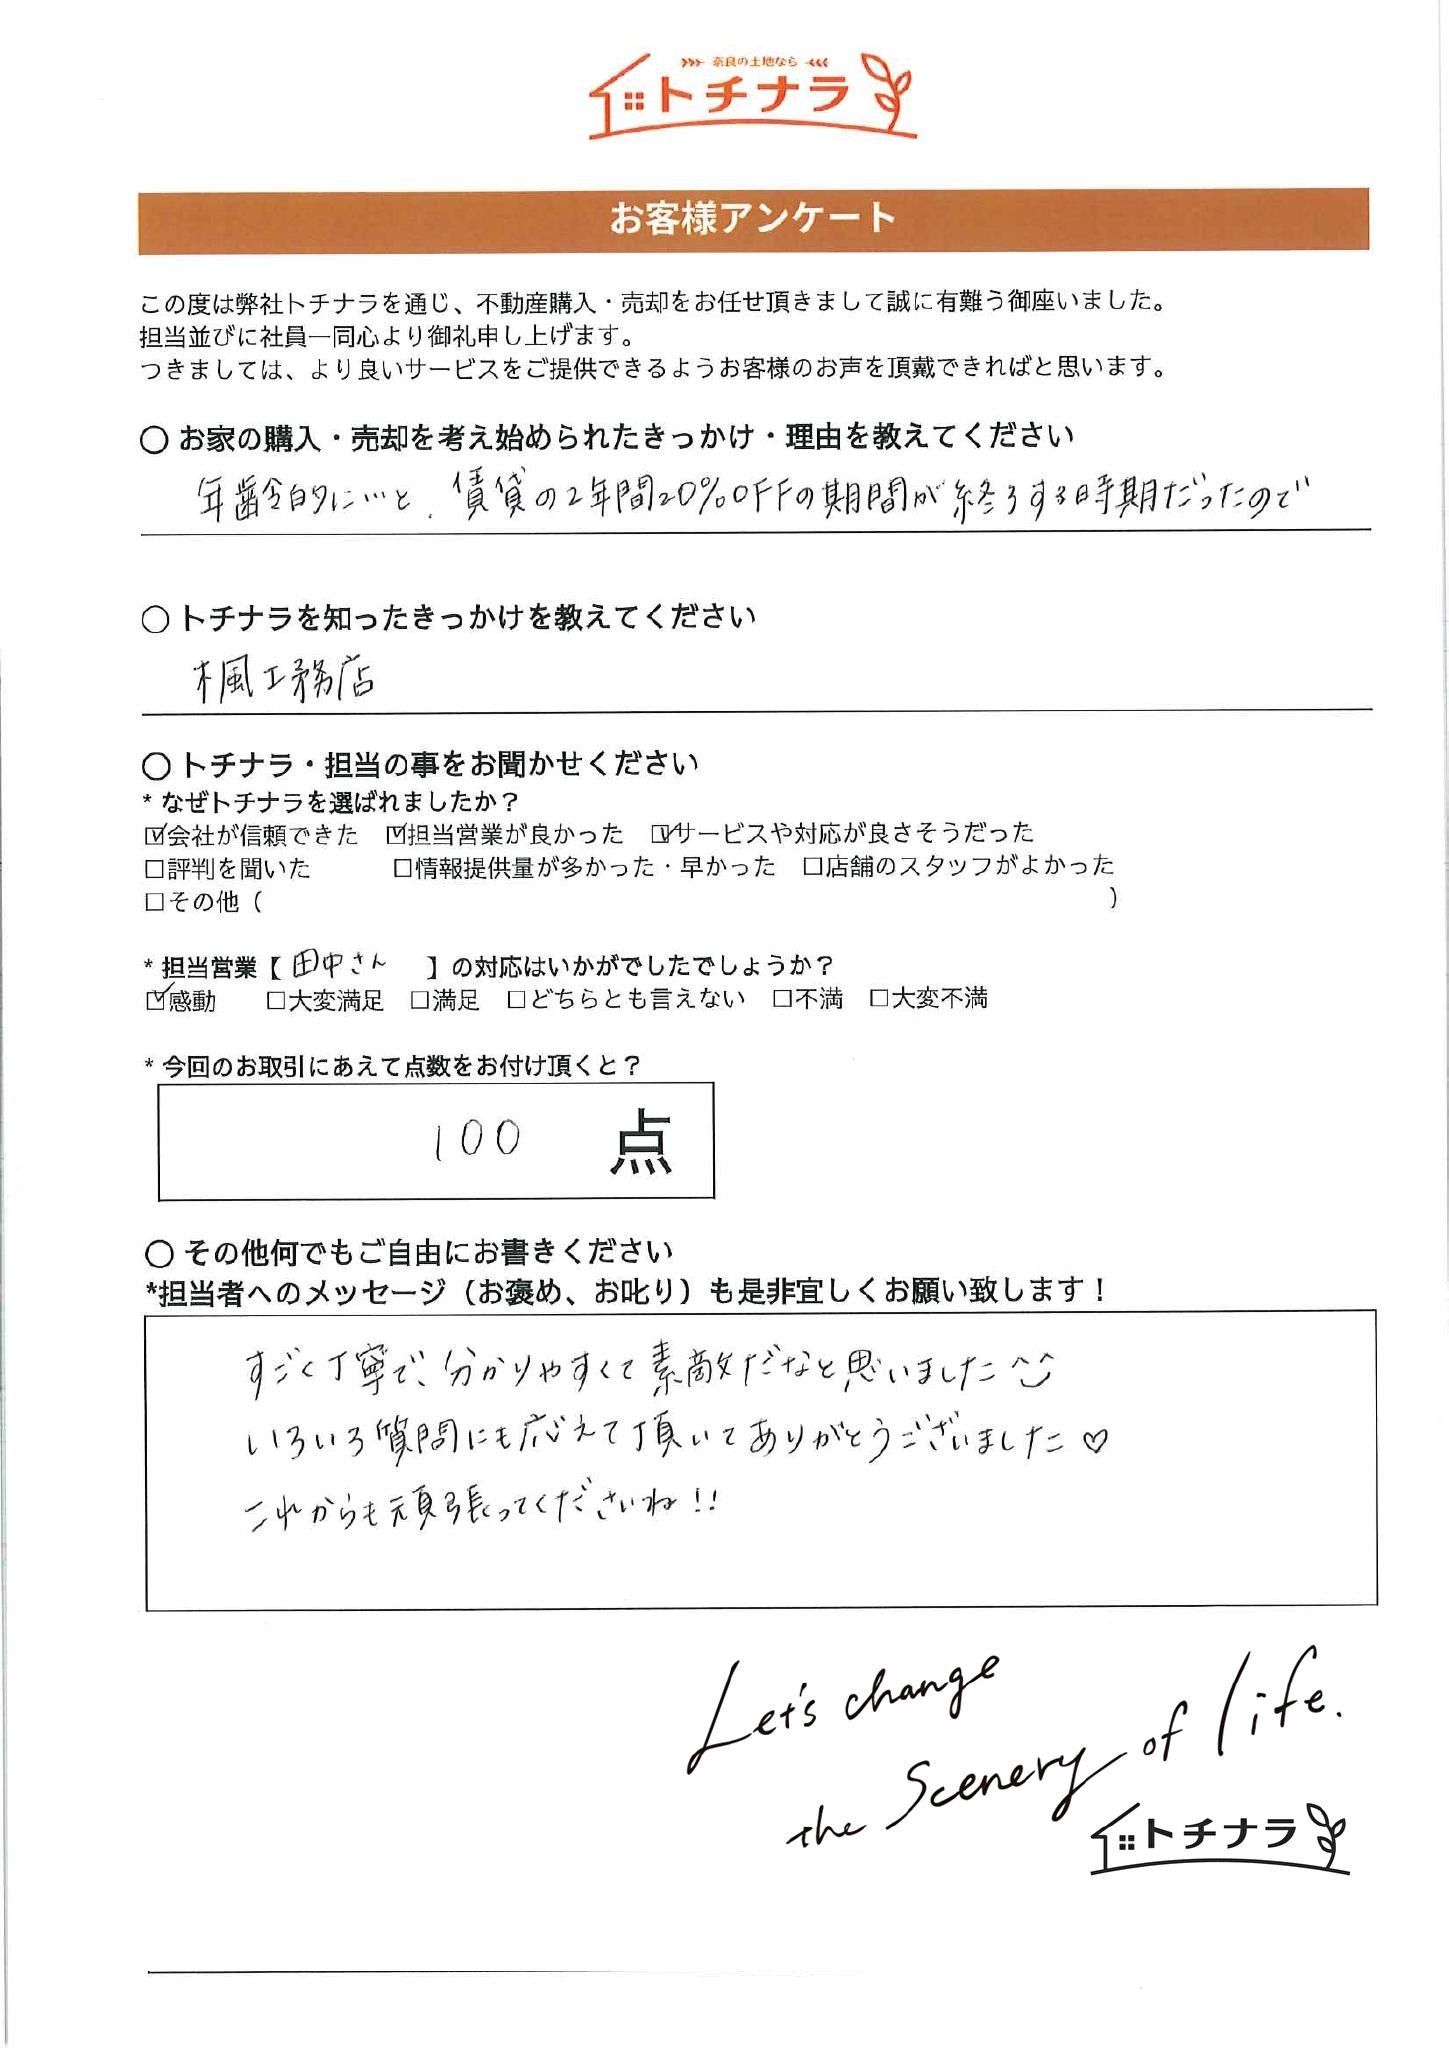 奈良の土地なら
トチナラ
お客様アンケート
この度は弊社トチナラを通じ、不動産購入・売却をお任せ頂きまして誠に有難う御座いました。
担当並びに社員一同心より御礼申し上げます。
つきましては、より良いサービスをご提供できるようお客様のお声を頂戴できればと思います。
○ お家の購入・売却を考え始められたきっかけ・理由を教えてください
年齢的に…と、賃貸の2年間20%OFFの期間が終了する時期だったので
○ トチナラを知ったきっかけを教えてください
楓工務店
○ トチナラ・担当の事をお聞かせください
* なぜトチナラを選ばれましたか？
☑会社が信頼できた ☑担当営業が良かった ☑サービスや対応が良さそうだった
□評判を聞いた □情報提供量が多かった・早かった □店舗のスタッフがよかった
□その他（ ）
* 担当営業【 田中さん 】の対応はいかがでしたでしょうか？
☑感動 □大変満足 □満足 □どちらとも言えない □不満 □大変不満
* 今回のお取引にあえて点数をお付け頂くと？
100 点
○ その他何でもご自由にお書きください
*担当者へのメッセージ（お褒め、お叱り）も是非宜しくお願い致します！
すごく丁寧で、分かりやすくて素敵だなと思いました^^
いろいろ質問にも応えて頂いてありがとうございました♡
これからも頑張ってくださいね!!
Let's change
the Scenery of life.
トチナラ